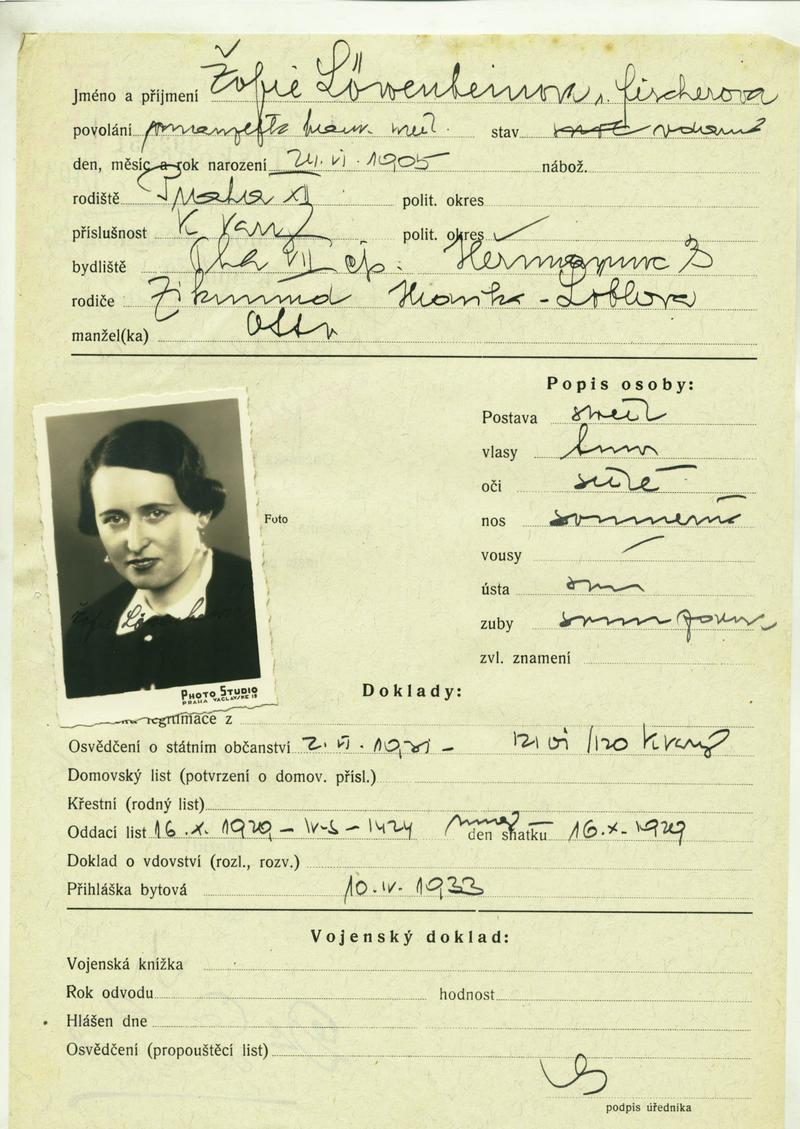 Jméno a příjmení Žofie Löwenbeinová r. Fischerova
povolání stav
den, měsíc a rok narození 24. VI. 1905 nábož.
rodiště Praha XII polit. okres
příslušnost K Vary polit. okres
bydliště Pha VII čp. Heřmanova
rodiče Zikmund Löblova
manžel(ka) Otto
Popis osoby:
Postava střed
vlasy
oči šedé
nos souměrný
vousy
ústa
zuby
zvl. znamení
Foto
Žofie Löwenbeinová
PHOTO STUDIO
PRAHA VÁCLAVSKÉ 19
Doklady:
legitimace z
Osvědčení o státním občanství 2. VI. K Vary
Domovský list (potvrzení o domov. přísl.)
Křestní (rodný list)
Oddací list 16. X. 1929 – den sňatku 16. X. 1929
Doklad o vdovství (rozl., rozv.)
Přihláška bytová 10. IV. 1933
Vojenský doklad:
Vojenská knížka
Rok odvodu hodnost
Hlášen dne
Osvědčení (propouštěcí list)
podpis úředníka